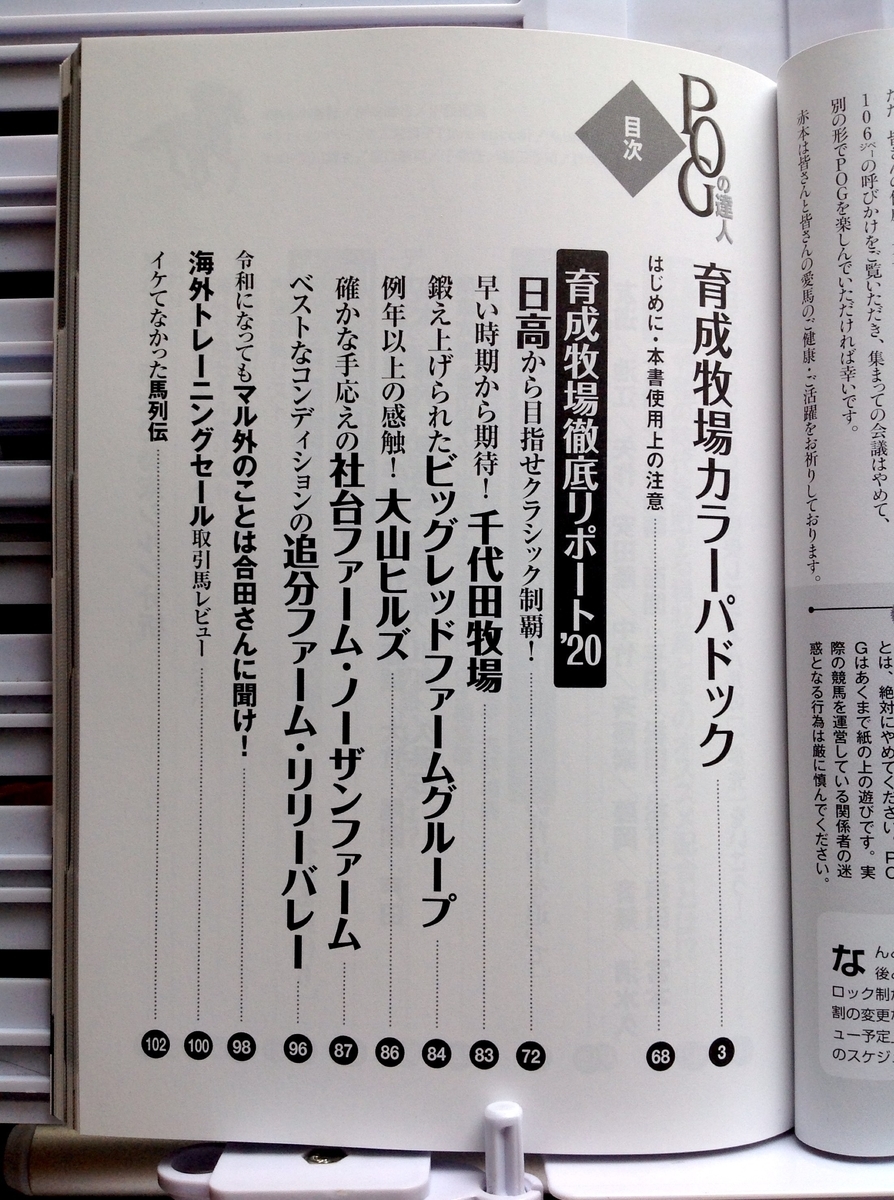 106ページの呼びかけをご覧いただき、集まっての会議はやめて、
別の形でPOGを楽しんでいただければ幸いです。
赤本は皆さんと皆さんの愛馬のご健康・ご活躍をお祈りしております。
とは、絶対にやめてください。PO
Gはあくまで紙の上の遊びです。実
際の競馬を運営している関係者の迷
惑となる行為は厳に慎んでください。
な
ロック制
割の変更
ュー予定
のスケジ
POGの達人
目次
育成牧場カラーパドック 3
はじめに・本書使用上の注意 68
育成牧場徹底リポート'20
日高から目指せクラシック制覇! 72
早い時期から期待! 千代田牧場 83
鍛え上げられたビッグレッドファームグループ 84
例年以上の感触! 大山ヒルズ 86
確かな手応えの社台ファーム・ノーザンファーム 87
ベストなコンディションの追分ファーム・リリーバレー 96
令和になってもマル外のことは合田さんに聞け! 98
海外トレーニングセール取引馬レビュー 100
イケてなかった馬列伝 102